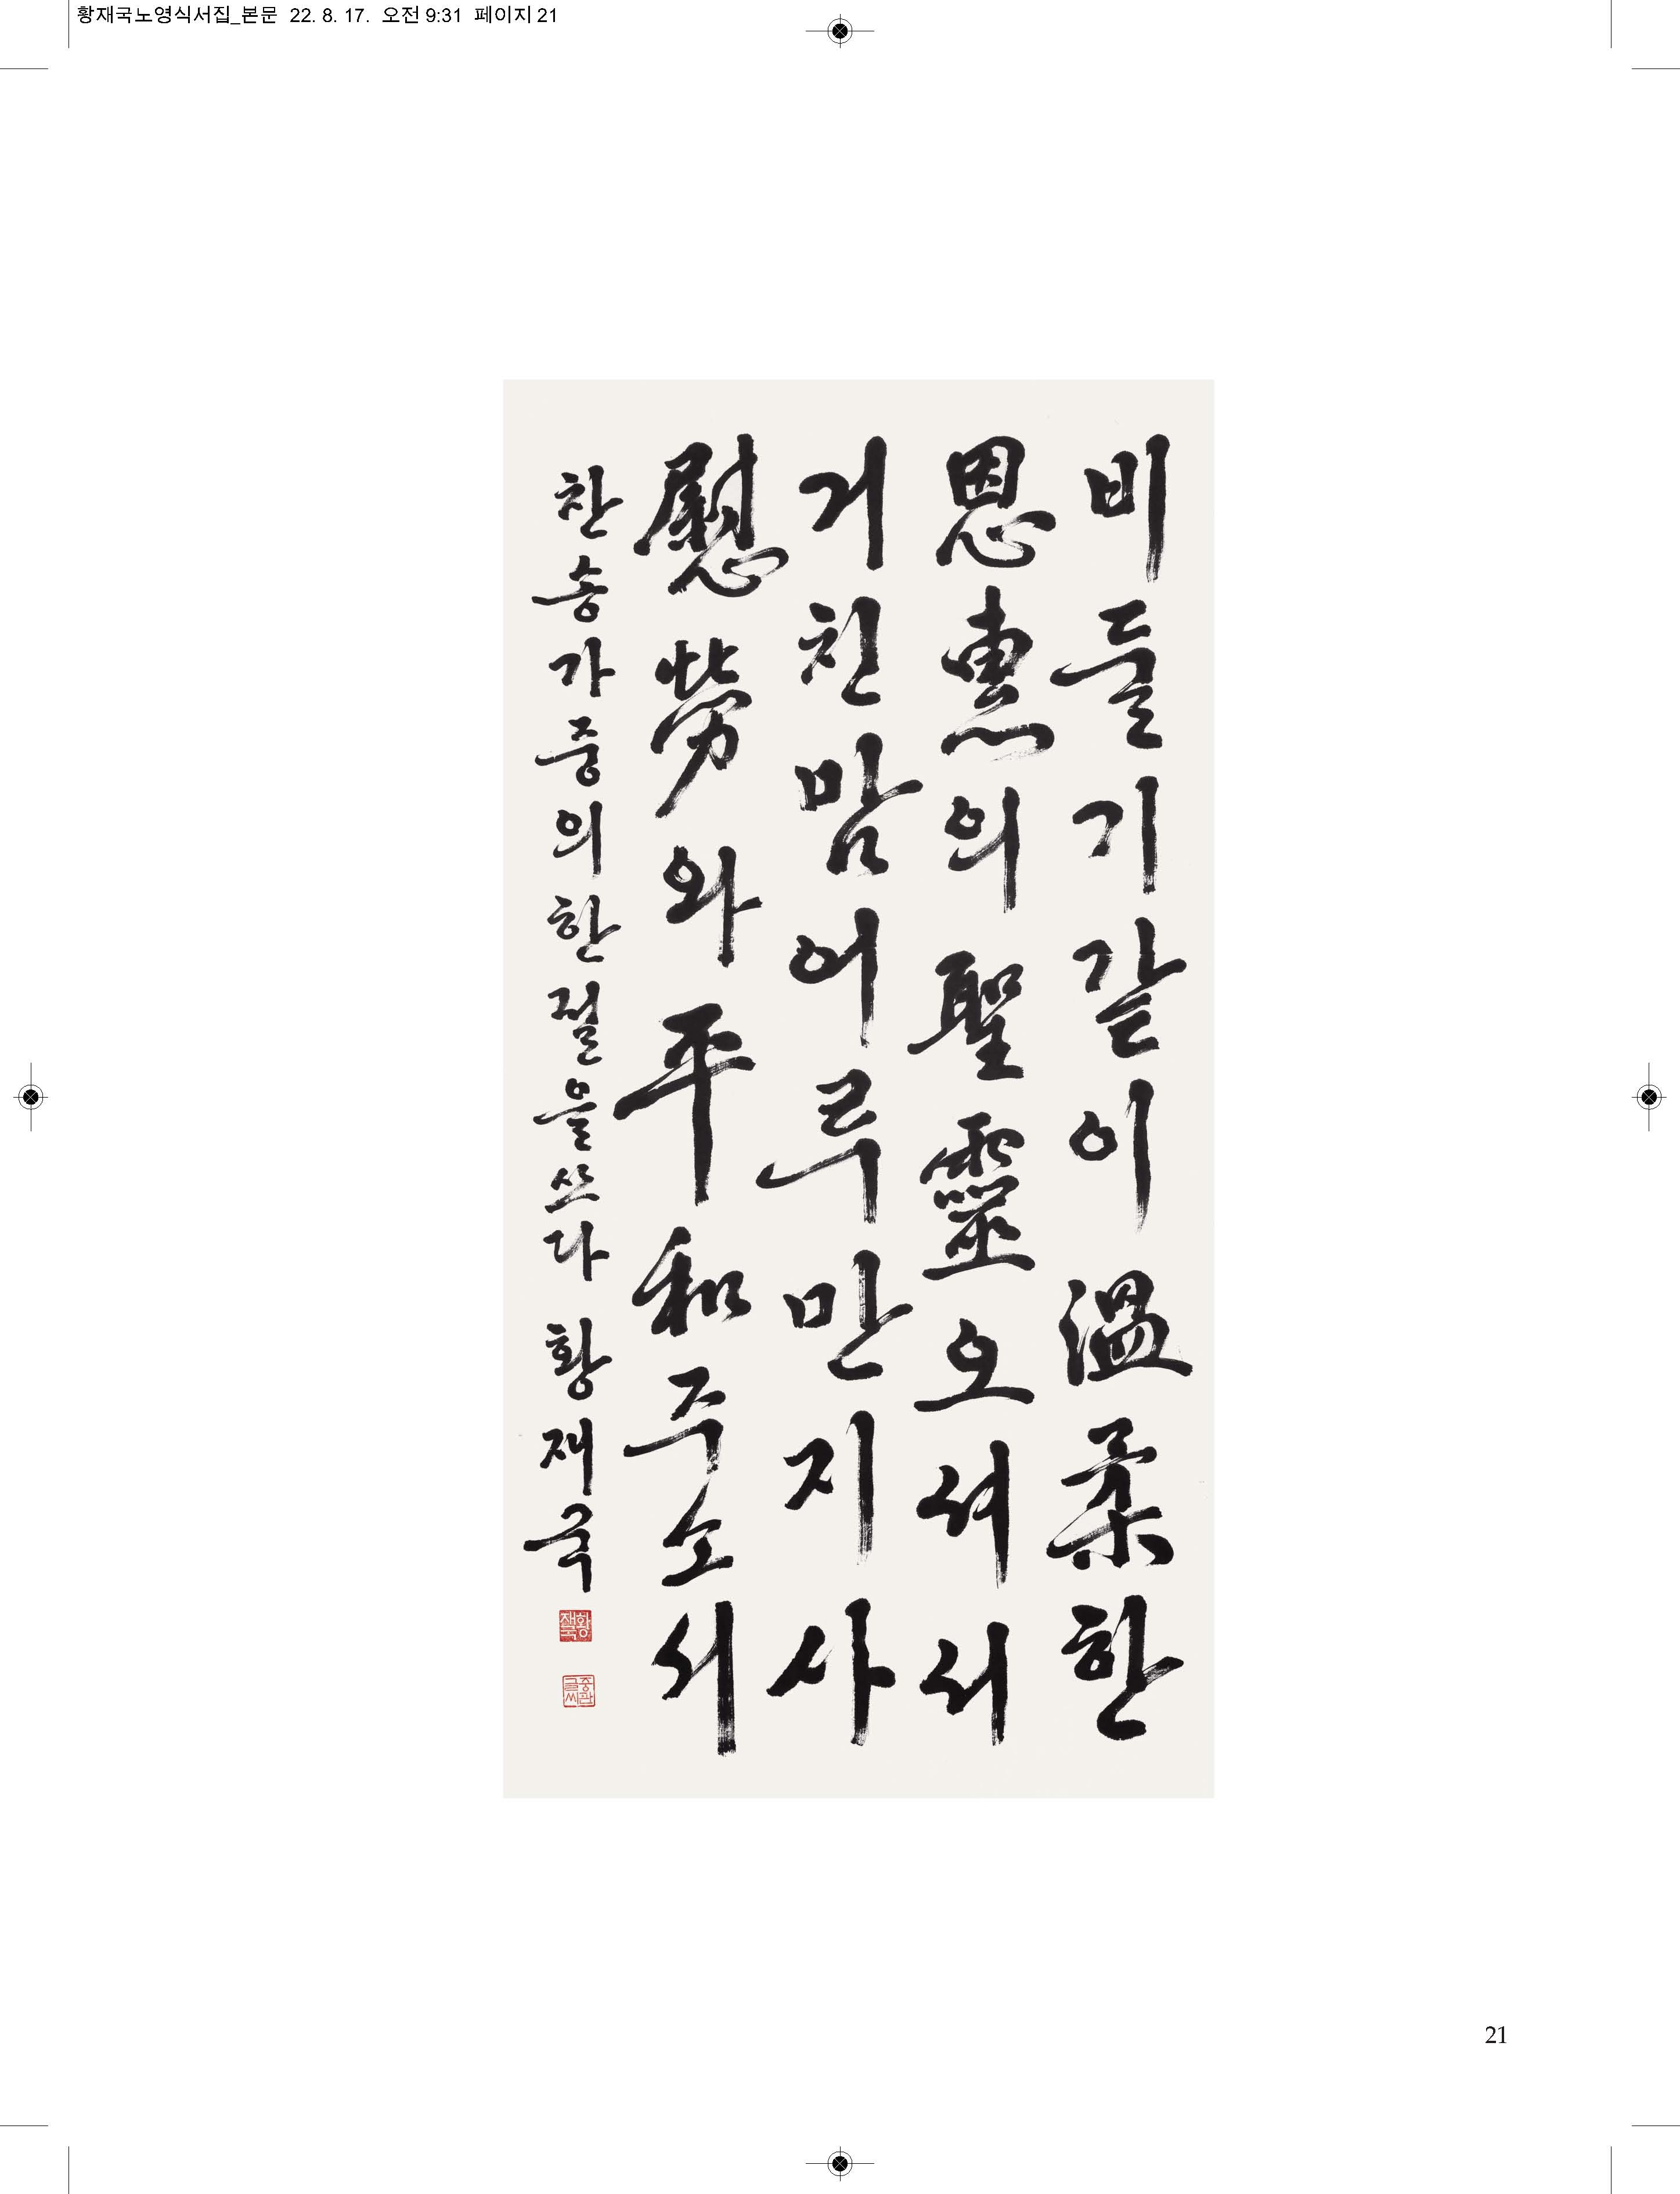 황재국노영식서집_본문 22. 8. 17. 오전 9:31 페이지 21
비들기같이溫柔한
恩惠의聖靈오셔서
거친맘어루만지사
慰勞와平和주소서
찬송가중의한절을쓰다 황재국
황재국
중관글씨
21